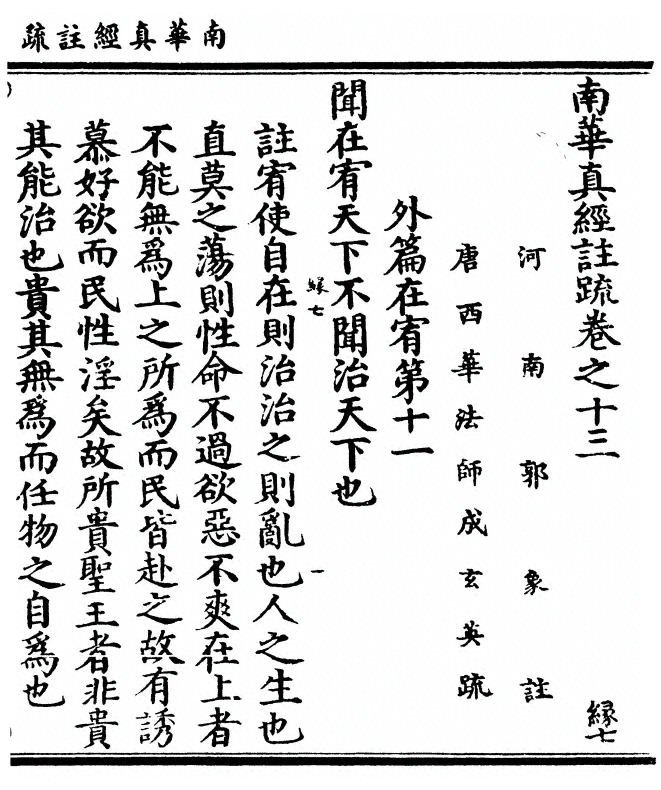 南華真經註疏
南華真經註疏卷之十三
緣七
河南郭象註
唐西華法師成玄英疏
外篇在宥第十一
聞在宥天下不聞治天下也
緣七
一
註宥使自在則治治之則亂也人之生也
直莫之蕩則性命不過欲惡不爽在上者
不能無爲上之所爲而民皆赴之故有誘
慕好欲而民性淫矣故所貴聖王者非貴
其能治也貴其無爲而任物之自爲也